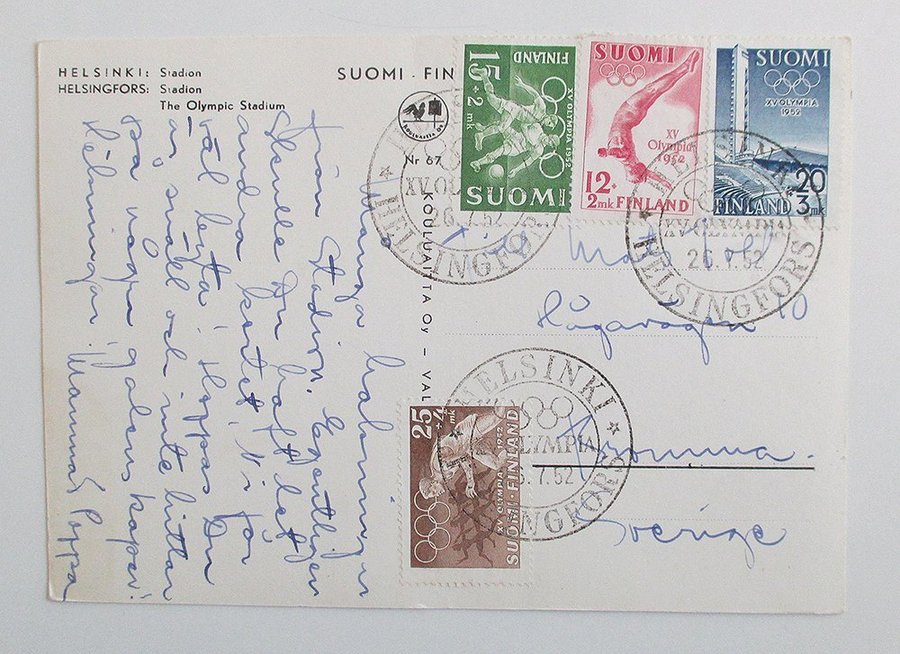 HELSINKI: Stadion
HELSINGFORS: Stadion
The Olympic Stadium
SUOMI · FIN
KOULUAITTA OY
Nr 67
KOULUAITTA Oy – VAL
15 + 2 mk
FINLAND
XV OLYMPIA 1952
SUOMI
SUOMI
XV
Olympia
1952
12+
2mk FINLAND
SUOMI
XV OLYMPIA
1952
20
FINLAND 3mk
XV OLYMPIA
26.7.52
HELSINGFORS
HELSINKI
XV OLYMPIA
26.7.52
HELSINGFORS
25
+4
mk
XV OLYMPIA 1952
SUOMI·FINLAND
HELSINKI
OLYMPIA
6.7.52
HELSINGFORS
Många hälsningar
från Stadion. Egentligen
skulle Du haft det
andra kortet. Ni får
väl byta! Hoppas Du
är snäll och inte hittar
på några galenskaper!
Hälsningar. Mamma & Pappa
10
Bromma.
Sverige